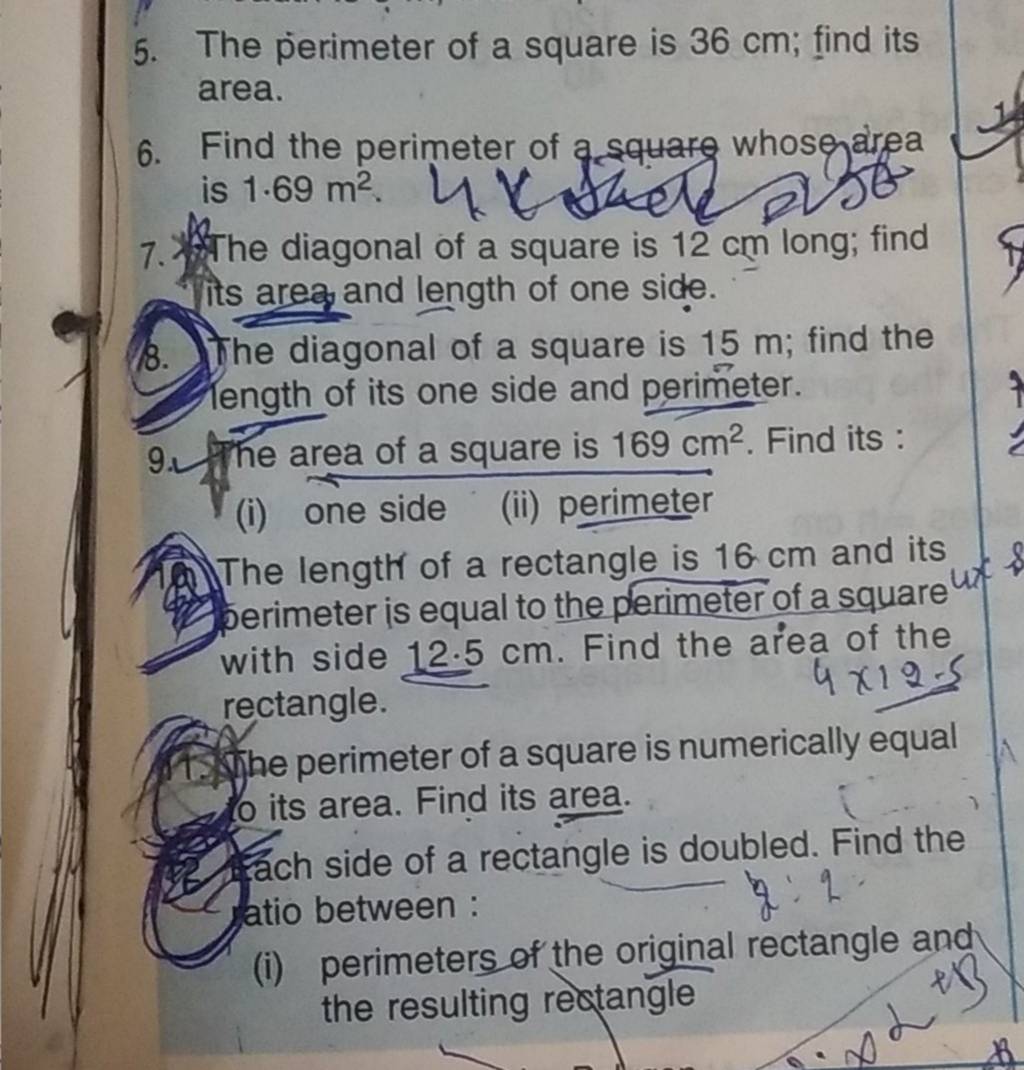 5. The perimeter of a square is 36 cm; find its
area.
6. Find the perimeter of a square whose area
is 1·69 m².
4 x side = 36
7. The diagonal of a square is 12 cm long; find
its area and length of one side.
8. The diagonal of a square is 15 m; find the
length of its one side and perimeter.
9. The area of a square is 169 cm². Find its :
(i) one side (ii) perimeter
10. The length of a rectangle is 16 cm and its
perimeter is equal to the perimeter of a square
4x
with side 12·5 cm. Find the area of the
4 x 12.5
rectangle.
11. The perimeter of a square is numerically equal
to its area. Find its area.
12. Each side of a rectangle is doubled. Find the
ratio between :
(i) perimeters of the original rectangle and
the resulting rectangle